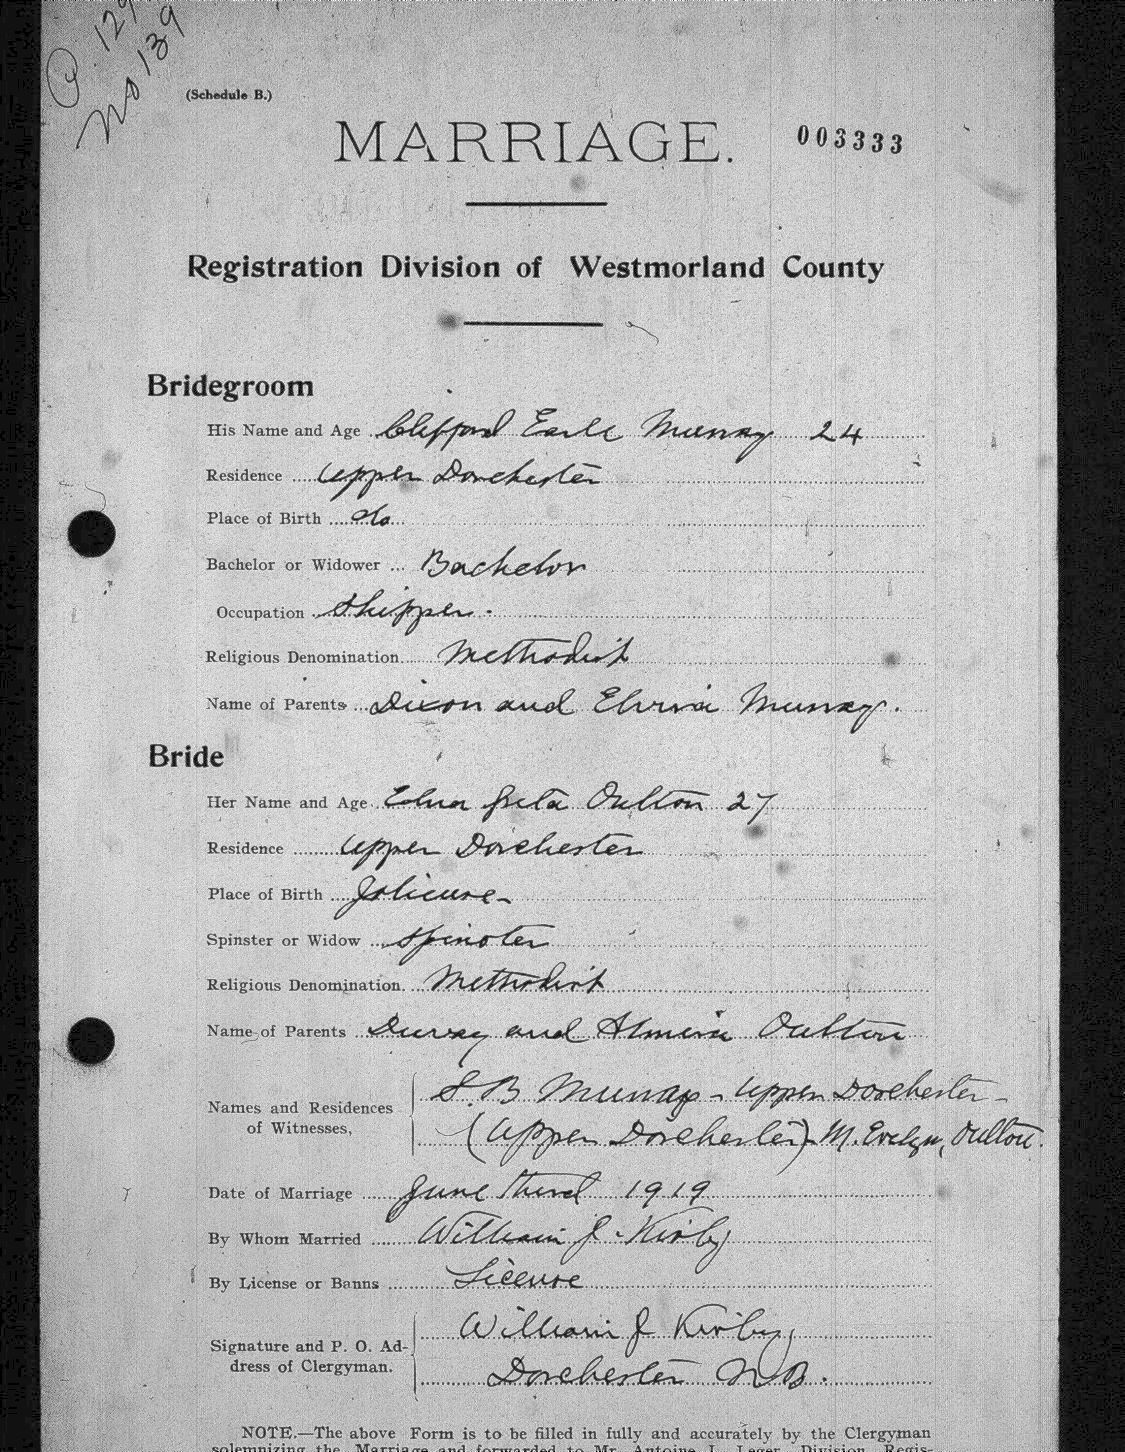 P. 129
No 139
(Schedule B.)
MARRIAGE.
003333
Registration Division of Westmorland County
Bridegroom
His Name and Age Clifford Earle Murray 24
Residence Upper Dorchester
Place of Birth do
Bachelor or Widower Bachelor
Occupation Shipper.
Religious Denomination Methodist
Name of Parents Dixon and Elvira Murray.
Bride
Her Name and Age Edna Greta Oulton 27
Residence Upper Dorchester
Place of Birth Jolicure
Spinster or Widow Spinster
Religious Denomination Methodist
Name of Parents and Almira Oulton
Names and Residences of Witnesses, S. B Murray - Upper Dorchester -
(Upper Dorchester) - M. Evelyn Oulton.
Date of Marriage June third 1919
By Whom Married William J. Kirby
By License or Banns License
Signature and P. O. Ad-
dress of Clergyman. William J Kirby,
Dorchester N.B.
NOTE.—The above Form is to be filled in fully and accurately by the Clergyman
solemnizing the Marriage and forwarded to Mr. Antoine J. Leger, Division Regis-